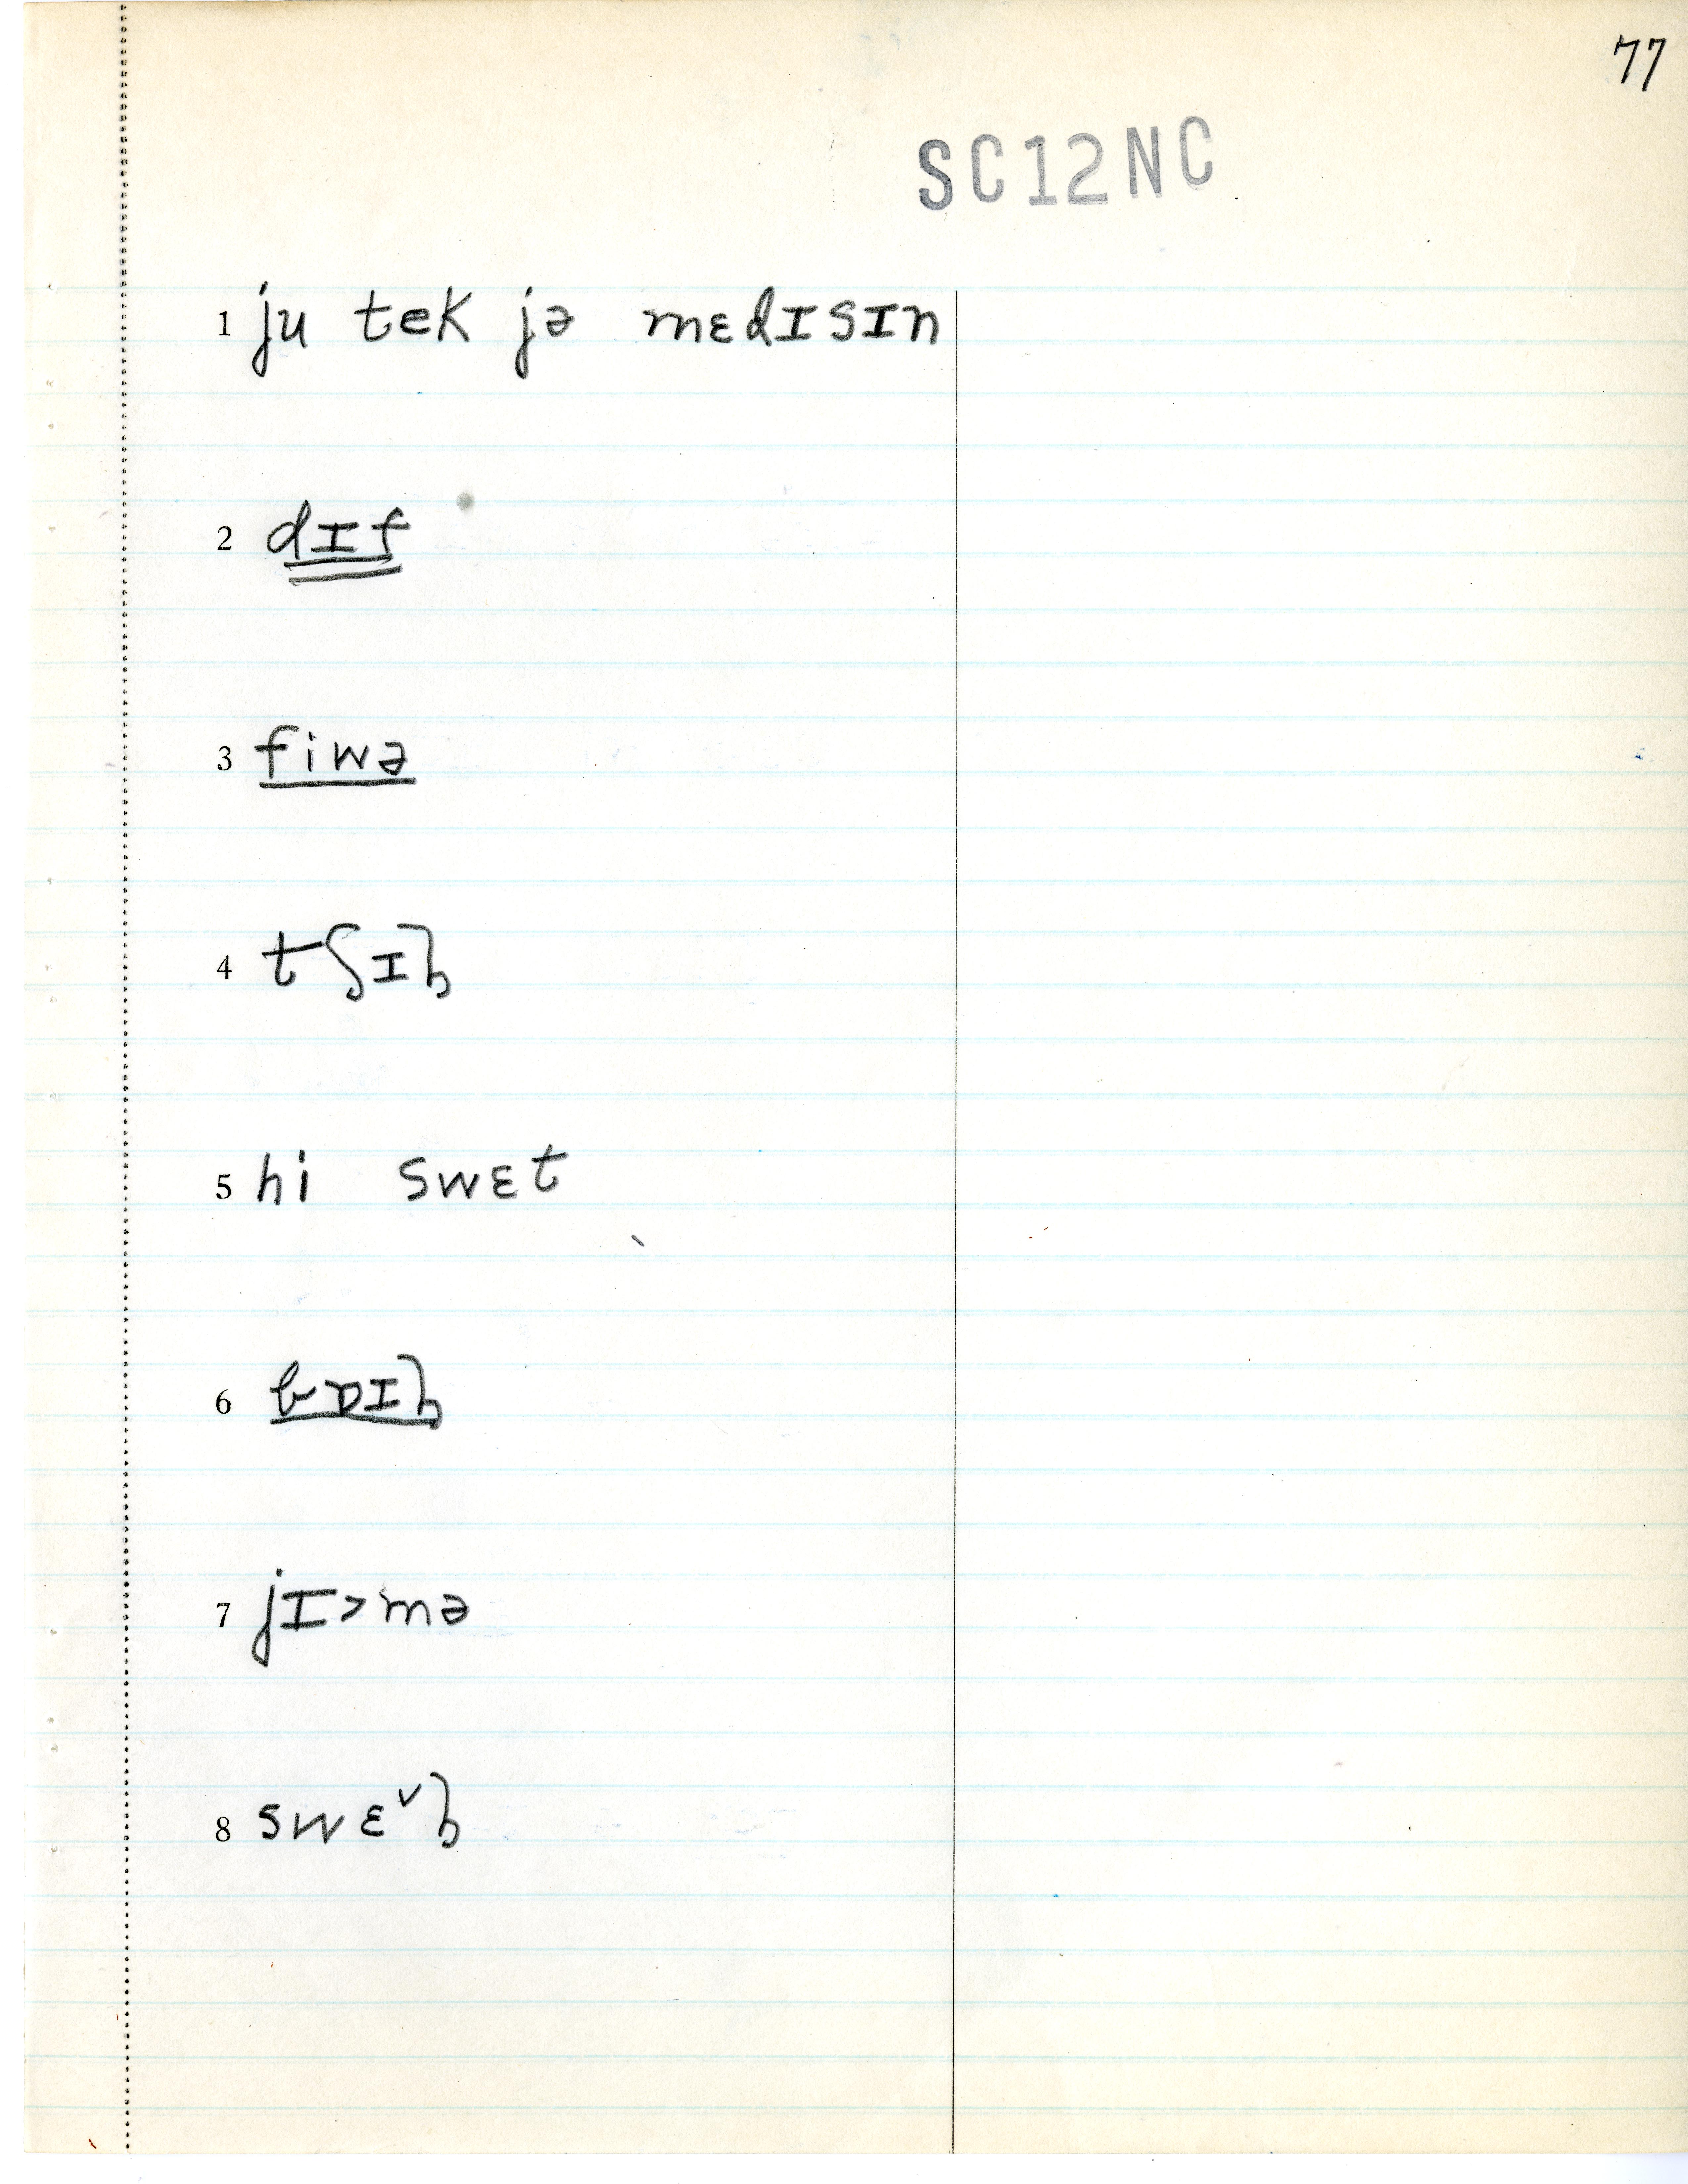 77
SC12NC
1 ju tek jə mɛdɪsɪn
2 dɪf
3 fiwə
4 tʃɪl
5 hi swɛt
6 bɒɪl
7 jɪ>mə
8 swɛ˅l